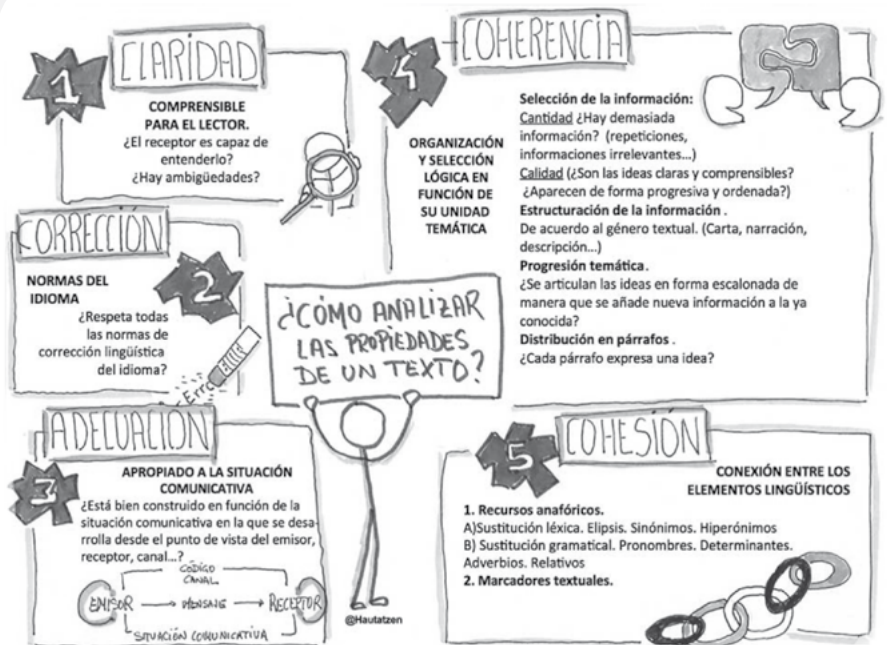 1
CLARIDAD
COMPRENSIBLE
PARA EL LECTOR.
¿El receptor es capaz de
entenderlo?
¿Hay ambigüedades?
CORRECCIÓN
2
NORMAS DEL
IDIOMA
¿Respeta todas
las normas de
corrección lingüística
del idioma?
Erro
ADECUACIÓN
3
APROPIADO A LA SITUACIÓN
COMUNICATIVA
¿Está bien construido en función de la
situación comunicativa en la que se desa-
rrolla desde el punto de vista del emisor,
receptor, canal...?
CÓDIGO
CANAL
EMISOR MENSAJE RECEPTOR
SITUACIÓN COMUNICATIVA
¿CÓMO ANALIZAR
LAS PROPIEDADES
DE UN TEXTO?
@Hautatzen
4
COHERENCIA
ORGANIZACIÓN
Y SELECCIÓN
LÓGICA EN
FUNCIÓN DE
SU UNIDAD
TEMÁTICA
Selección de la información:
Cantidad ¿Hay demasiada
información? (repeticiones,
informaciones irrelevantes...)
Calidad (¿Son las ideas claras y comprensibles?
¿Aparecen de forma progresiva y ordenada?)
Estructuración de la información .
De acuerdo al género textual. (Carta, narración,
descripción...)
Progresión temática.
¿Se articulan las ideas en forma escalonada de
manera que se añade nueva información a la ya
conocida?
Distribución en párrafos .
¿Cada párrafo expresa una idea?
5
COHESIÓN
CONEXIÓN ENTRE LOS
ELEMENTOS LINGÜÍSTICOS
1. Recursos anafóricos.
A)Sustitución léxica. Elipsis. Sinónimos. Hiperónimos
B) Sustitución gramatical. Pronombres. Determinantes.
Adverbios. Relativos
2. Marcadores textuales.